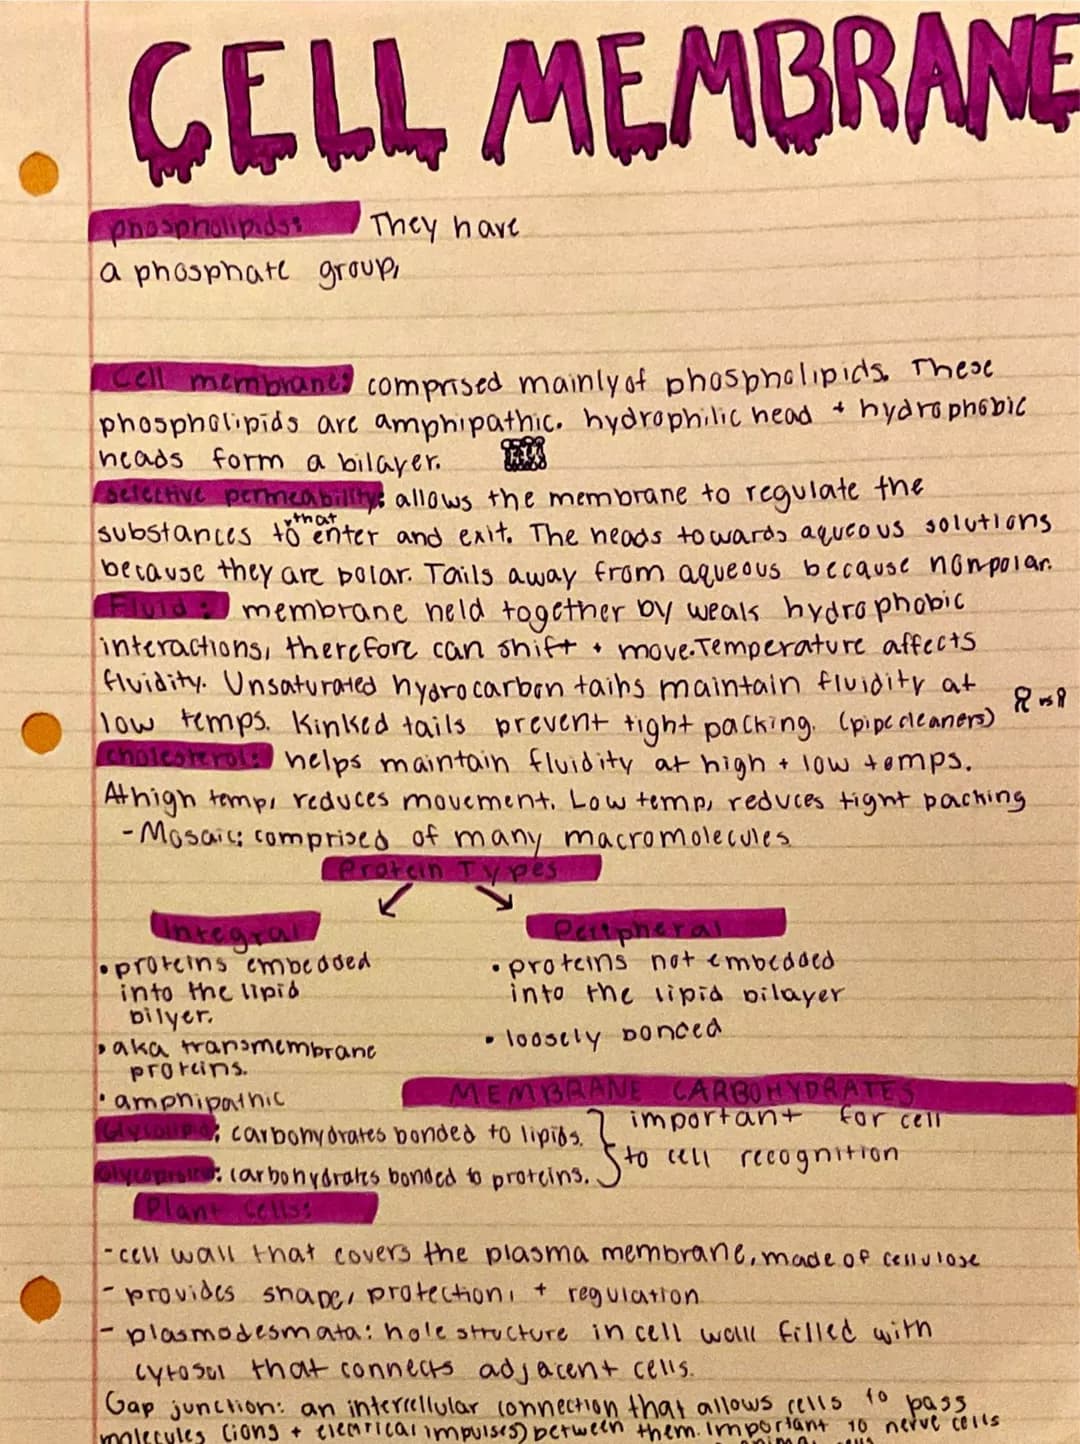 CELL MEMBRANE
phospholipids: They have
a phosphate group,
Cell membrane: comprised mainly of phospholipids. These
phospholipids are amphipathic. hydrophilic head + hydrophobic
heads form a bilayer.
selective permeability: allows the membrane to regulate the
substances to that enter and exit. The heads towards aqueous solutions
because they are polar. Tails away from aqueous because nonpolar.
Fluid: membrane held together by weak hydrophobic
interactions, therefore can shift + move. Temperature affects
fluidity. Unsaturated hydrocarbon tails maintain fluidity at
low temps. Kinked tails prevent tight packing. (pipecleaners) vs
cholesterol: helps maintain fluidity at high + low temps.
At high temp, reduces movement. Low temp, reduces tight packing
- Mosaic: comprised of many macromolecules
Protein Types
Integral
• proteins embedded
into the lipid
bilyer.
• aka transmembrane
proteins.
• amphipathic
Peripheral
• proteins not embedded
into the lipid bilayer
• loosely bonded
MEMBRANE CARBOHYDRATES
Glycolipid: carbohydrates bonded to lipids.
Glycoprotein: carbohydrates bonded to proteins.
important for cell
to cell recognition
Plant Cells:
- cell wall that covers the plasma membrane, made of cellulose
- provides shape, protection, + regulation
- plasmodesmata: hole structure in cell wall filled with
cytosol that connects adjacent cells.
Gap junction: an intercellular connection that allows cells to pass
molecules (ions + electrical impulses) between them. Important to nerve cells